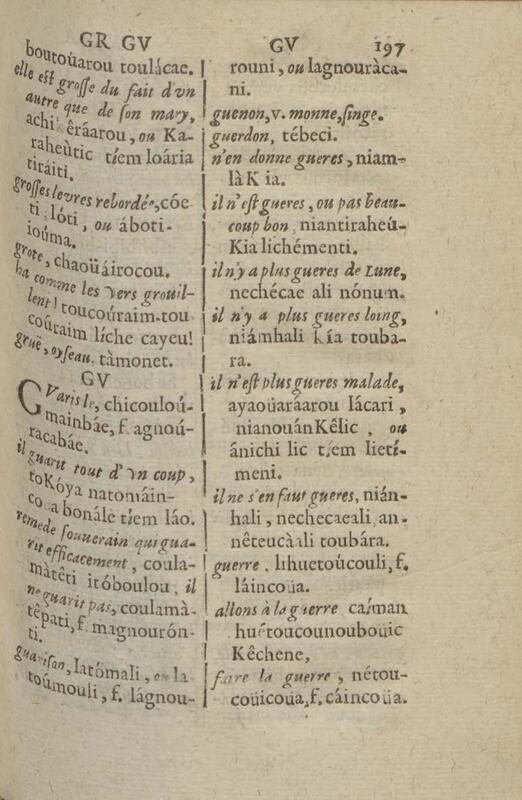 GR GV
boutoúarou toulácae.
elle est grosse du fait d'vn
autre que de son mary,
achiKêráarou, ou Ka-
raheùtic tíem loária
tiráiti.
grosses levres rebordées, cóe-
ti lóti, ou áboti-
ioúma.
grote, chaoüáirocou.
ha comme les vers grouil-
lent! toucoúraim-tou
coúraim líche cayeu!
gruë, oyseau. tàmonet.
GV
GVaris le, chicouloú-
mainbáe, f. agnoú-
racabáe.
il guarit tout d'vn coup,
toKóya natomáin-
coua bonále tíem láo.
remede souuerain qui gua-
rit efficacement, coula-
màtêti itóboulou, il
ne guarit pas, coulamà-
têpati, f. magnourón-
ti.
guarison, Iatómali, ou la
toúmouli, f. lágnou-
GV 197
rouni, ou lagnouràca-
ni.
guenon, v. monne, singe.
guerdon, tébeci.
n'en donne gueres, niam-
làK ia.
il n'est gueres, ou pas beau-
coup bon, niantiraheú-
Kia lichémenti.
il n'y a plus gueres de Lune,
nechécae ali nónum.
il n'y a plus gueres loing,
niámhali kía touba-
ra.
il n'est plus gueres malade,
ayaoüaráarou Iácari,
nianouánKêlic, ou
ánichi lic tíem lietí-
meni.
il ne s'en faut gueres, nián-
hali, nechecaeali, an-
nêteucàali toubára.
guerre, lihuetoúcouli, f.
láincoüa.
allons à la guerre caíman
huétoucounoubouic
Kêchene,
faire la guerre, nétou-
coüicoüa, f. cáincoüa.